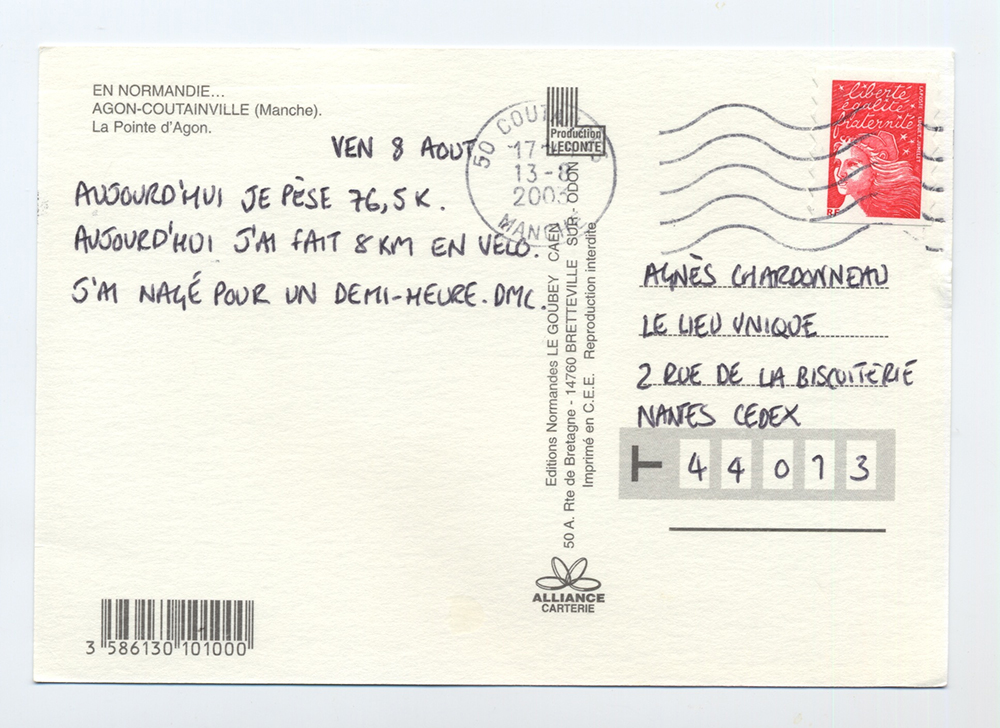 EN NORMANDIE...
AGON-COUTAINVILLE (Manche).
La Pointe d'Agon.
VEN 8 AOUT
AUJOURD'HUI JE PÈSE 76,5 K.
AUJOURD'HUI J'AI FAIT 8 KM EN VELO.
J'AI NAGÉ POUR UN DEMI-HEURE. DMC.
Production
LECONTE
50
13-8
2003
Editions Normandes LE GOUBEY CAEN
50 A. Rte de Bretagne - 14760 BRETTEVILLE SUR ODON
Imprimé en C.E.E. Reproduction interdite
ALLIANCE
CARTERIE
3 586130 101000
liberté
égalité
fraternité
RF
AGNÈS CHARDONNEAU
LE LIEU UNIQUE
2 RUE DE LA BISCUITERIE
NANTES CEDEX
44013